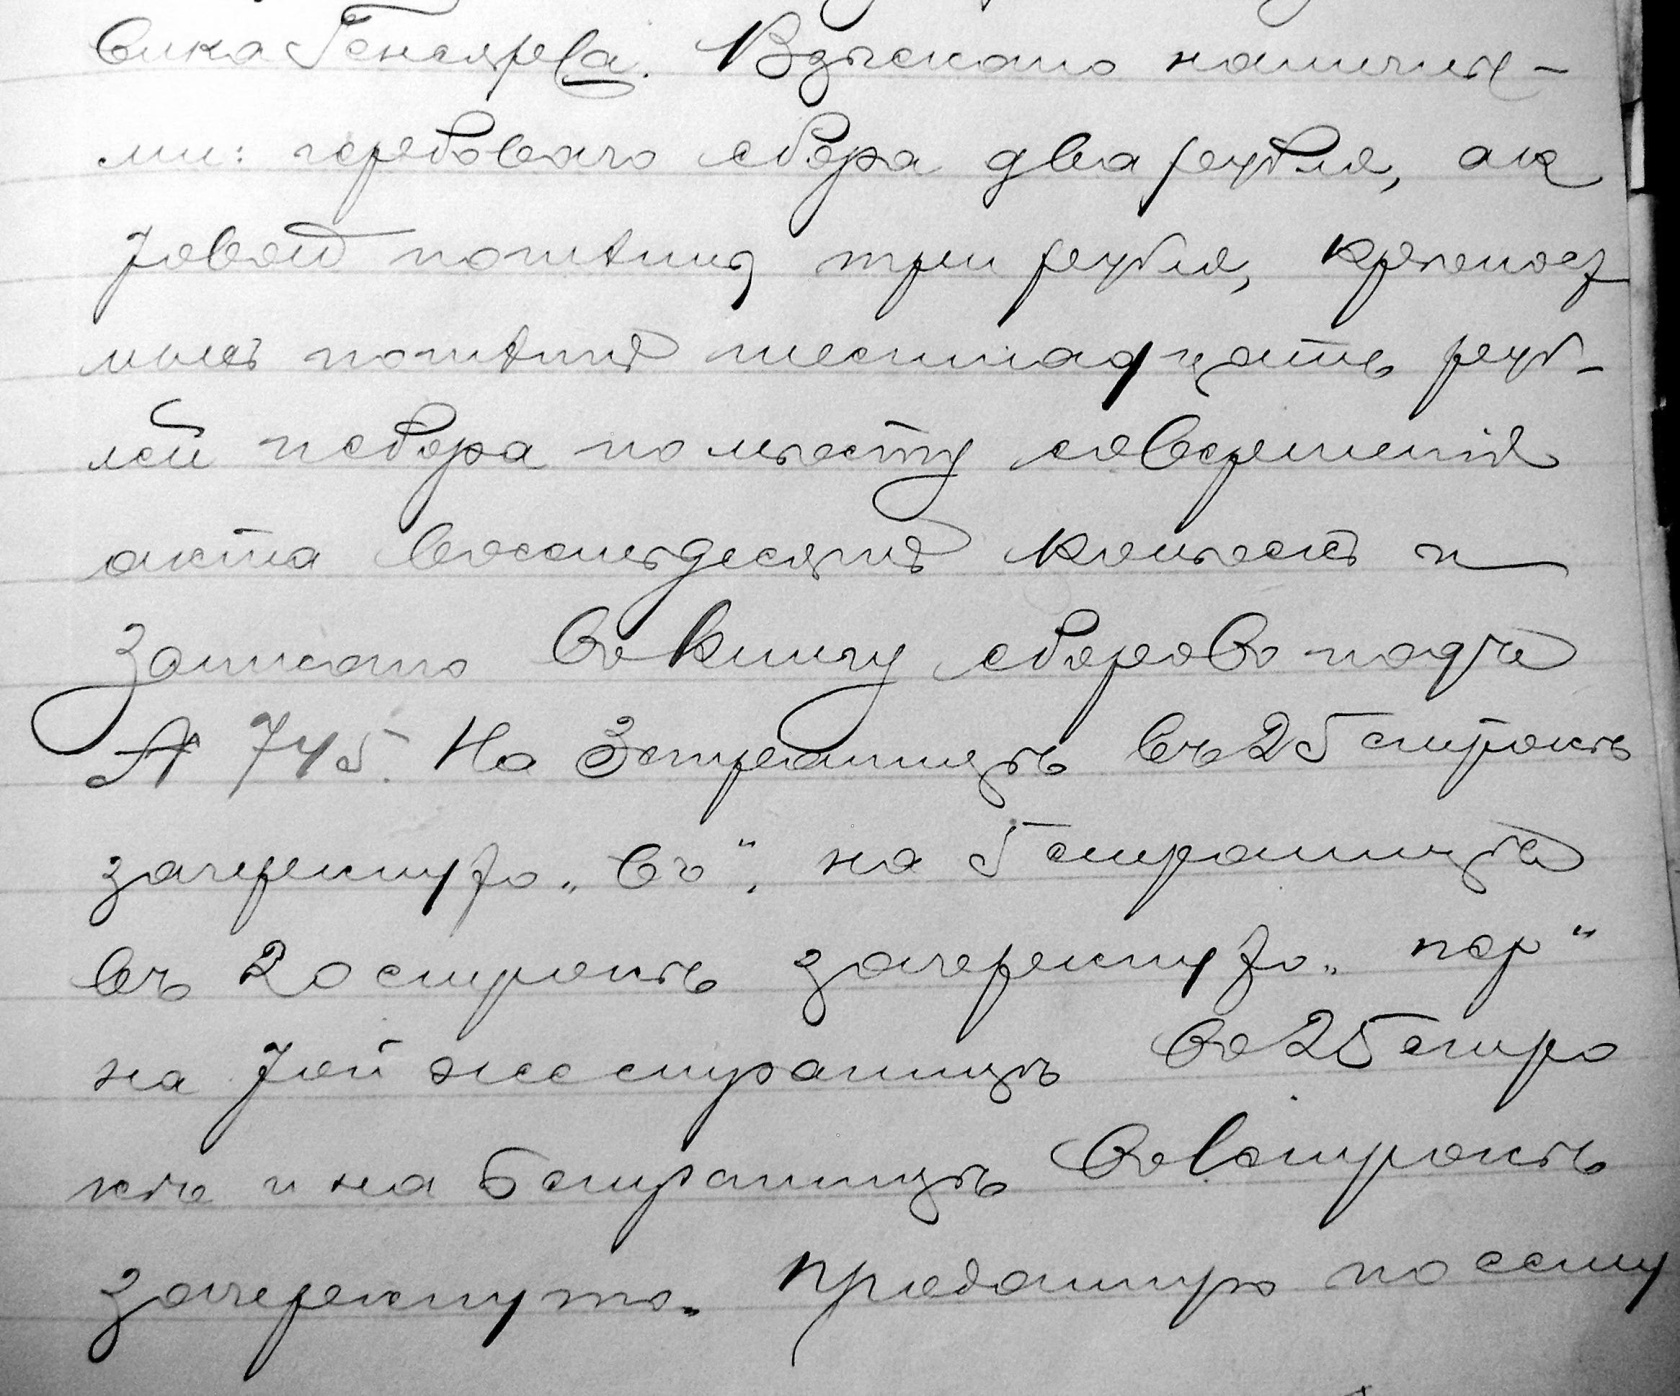 вика Генсярева. Взыскано наличны-
ми: гербоваго сбора два рубля, ак
товой пошлины три рубля, крепост
ныхъ пошлинъ шестнадцать руб-
лей и сбора по месту совершенiя
акта восемьдесятъ копѣекъ и
записано въ книгу сборовъ подъ
№ 745. На 3 страницѣ въ 25 строкѣ
зачеркнуто „въ“, на 5 страницѣ
въ 20 строкѣ зачеркнуто „пер“
на той же страницѣ въ 25 стро
кѣ и на 6 страницѣ въ 1 строкѣ
зачеркнуто „ проданную по сему